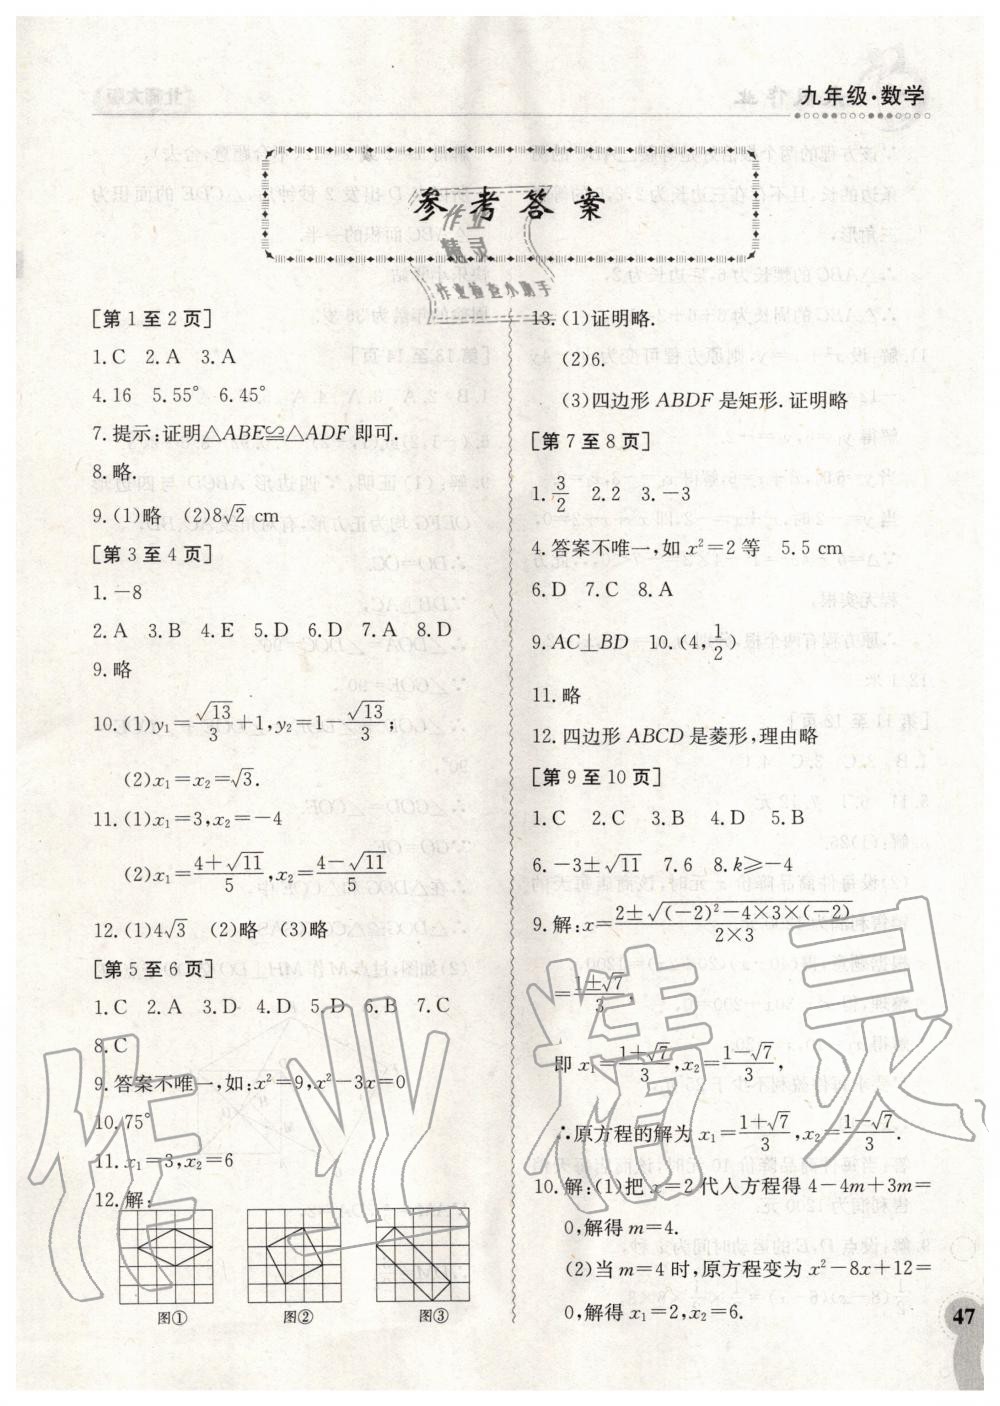 九年级·数学
参考答案
作业
精灵
作业检查小助手
[第1至2页]
1.C 2.A 3.A
4.16 5.55° 6.45°
7.提示:证明△ABE≌△ADF即可.
8.略.
9.(1)略 (2)8√2 cm
[第3至4页]
1.-8
2.A 3.B 4.E 5.D 6.D 7.A 8.D
9.略
10.(1)y₁=√13/3+1,y₂=1-√13/3;
(2)x₁=x₂=√3.
11.(1)x₁=3,x₂=-4
(2)x₁=(4+√11)/5,x₂=(4-√11)/5
12.(1)4√3 (2)略 (3)略
[第5至6页]
1.C 2.A 3.D 4.D 5.D 6.B 7.C
8.C
9.答案不唯一,如:x²=9,x²-3x=0
10.75°
11.x₁=3,x₂=6
12.解:
图① 图② 图③
13.(1)证明略.
(2)6.
(3)四边形ABDF是矩形.证明略
[第7至8页]
1.3/2 2.2 3.-3
4.答案不唯一,如x²=2等 5.5 cm
6.D 7.C 8.A
9.AC⊥BD 10.(4,1/2)
11.略
12.四边形ABCD是菱形,理由略
[第9至10页]
1.C 2.C 3.B 4.D 5.B
6.-3±√11 7.6 8.k≥-4
9.解:x=(2±√((-2)²-4×3×(-2)))/(2×3)
=(1±√7)/3,
即x₁=(1+√7)/3,x₂=(1-√7)/3,
∴原方程的解为x₁=(1+√7)/3,x₂=(1-√7)/3.
10.解:(1)把x=2代入方程得4-4m+3m=
0,解得m=4.
(2)当m=4时,原方程变为x²-8x+12=
0,解得x₁=2,x₂=6.
47
作业精灵